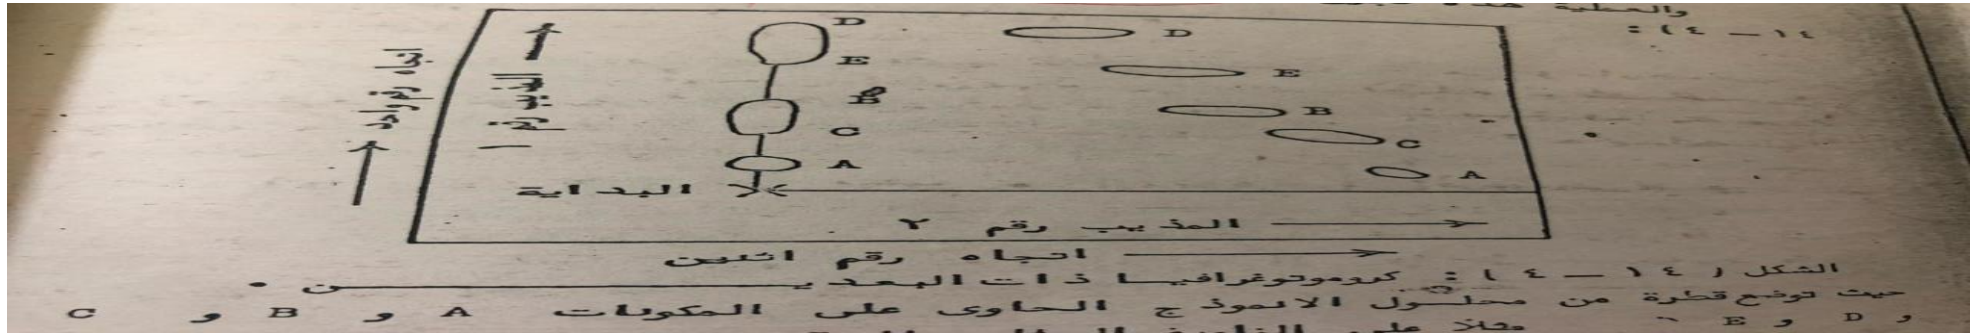 والعطية هذه
١٤ – ٤ ) :
D D
E E
B B
C C
A A
اتجاه رقم واحد
المذيب رقم ١
البداية
المذيب رقم ٢
اتجاه رقم اثنين
الشكل ( ١٤ – ٤ ) : كروموتوغرافيا ذات البعدين .
حيث توضع قطرة من محلول الانموذج الحاوى على المكونات A و B و C
و D و E